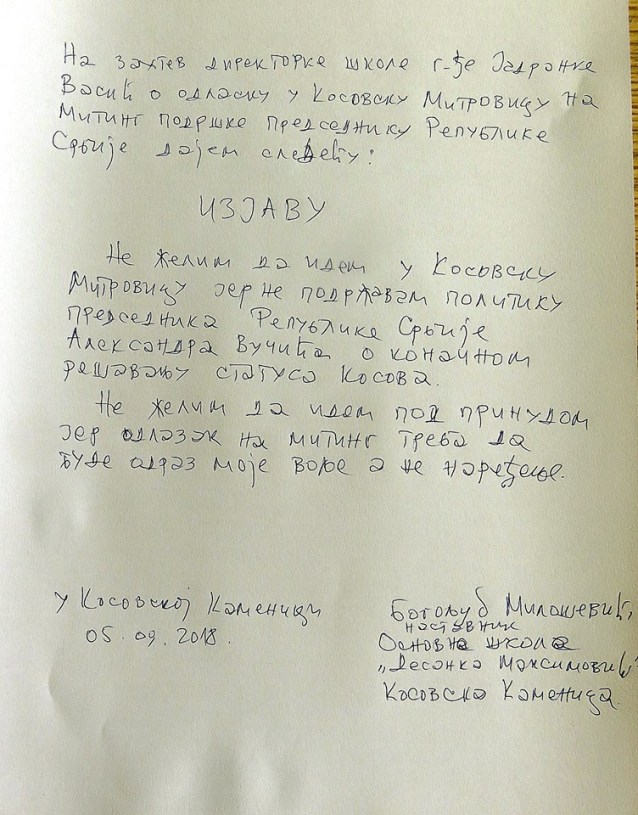 На захтев директорке школе г-ђе Јадранке
Васић о одласку у Косовску Митровицу на
Митинг подршке председнику Републике
Србије дајем следећу:
ИЗЈАВУ
Не желим да идем у Косовску
Митровицу јер не подржавам политику
председника Републике Србије
Александра Вучића о коначном
решавању статуса Косова.
Не желим да идем под принудом
јер одлазак на митинг треба да
буде одраз моје воље а не наређење.
У Косовској Каменици
05.09.2018.
Богољуб Милошевић,
наставник
Основна школа
„Десанка Максимовић"
Косовска Каменица.